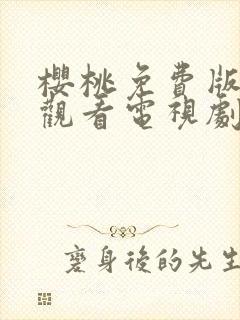 櫻桃免費版
觀看電視劇
變身後的先生